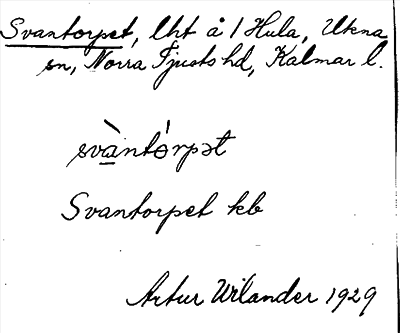 Svantorpet, lht å 1 Hula, Ukna
sn, Norra Tjusts hd, Kalmar l.
svàntórpət
Svantorpet kb
Artur Wilander 1929